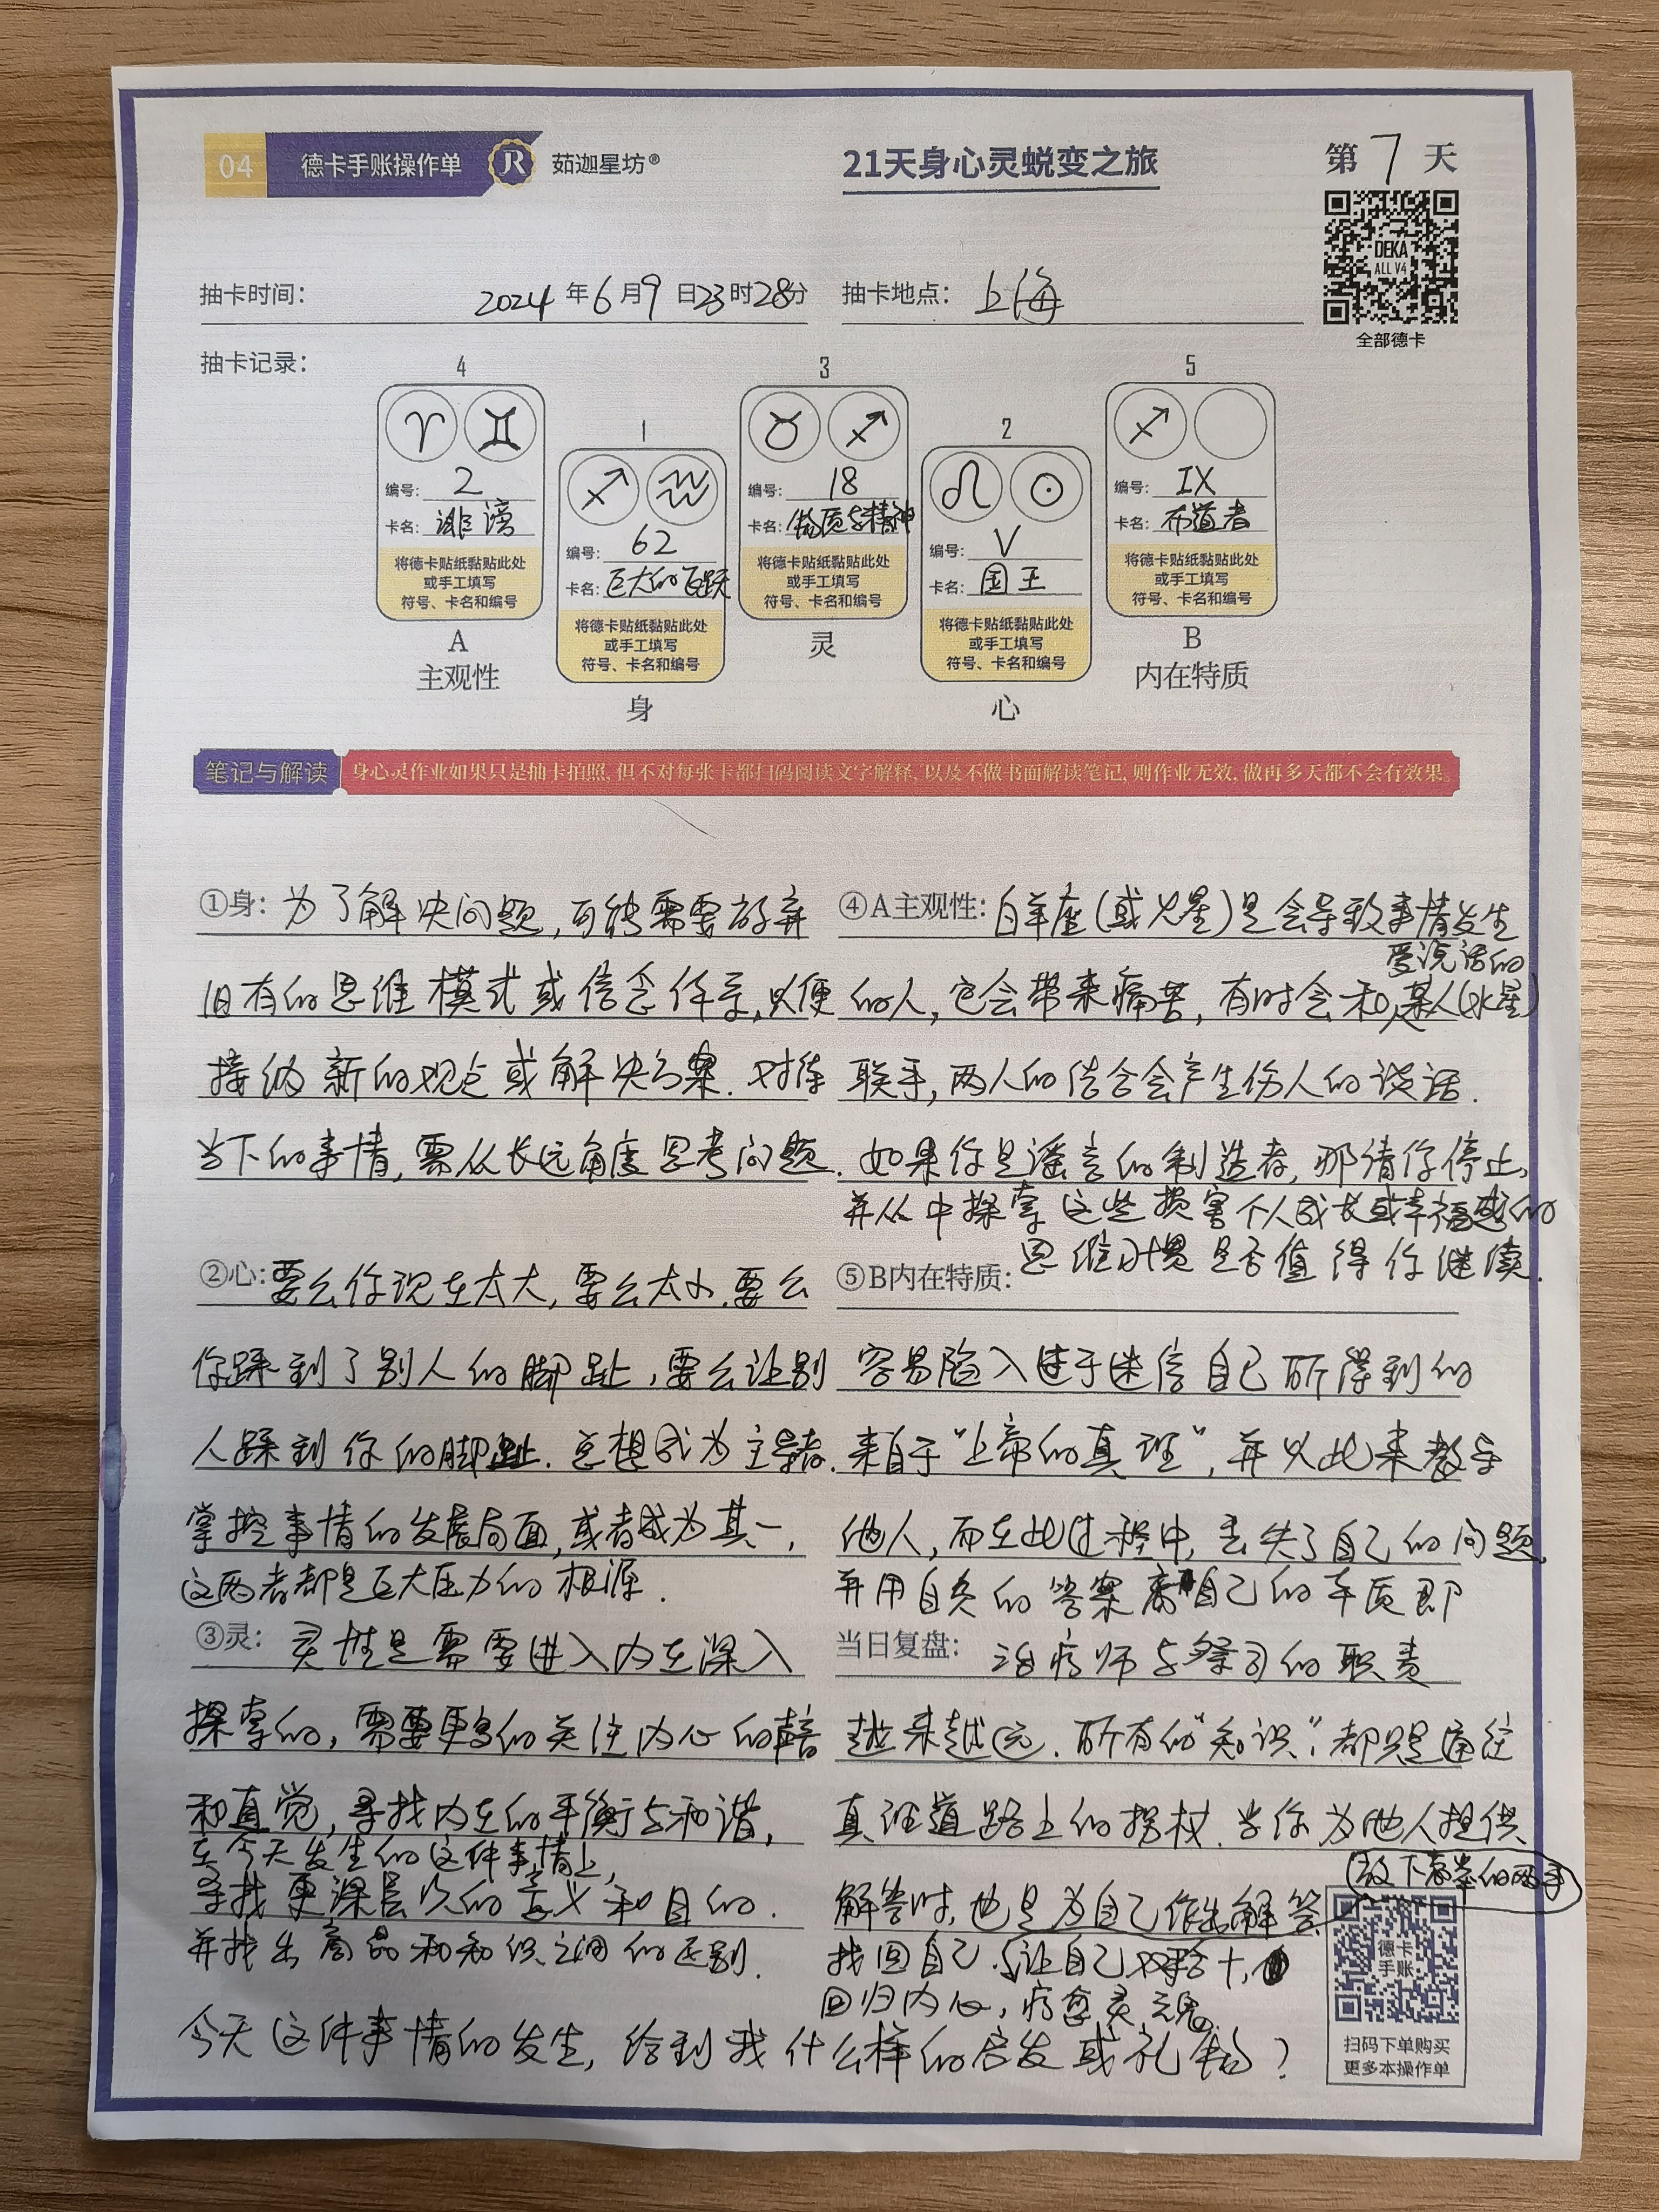 04 德卡手账操作单 JR 茹迦星坊®
21天身心灵蜕变之旅
第7天
DEKA
ALL V4
全部德卡
抽卡时间： 2024年6月9日23时28分 抽卡地点： 上海
抽卡记录：
4
♈ ♊
编号： 2
卡名： 诽谤
将德卡贴纸黏贴此处
或手工填写
符号、卡名和编号
A
主观性
1
♐ ♒
编号： 62
卡名： 巨大的飞跃
将德卡贴纸黏贴此处
或手工填写
符号、卡名和编号
身
3
♉ ♐
编号： 18
卡名： 物质与精神
将德卡贴纸黏贴此处
或手工填写
符号、卡名和编号
灵
2
♌ ☉
编号： V
卡名： 国王
将德卡贴纸黏贴此处
或手工填写
符号、卡名和编号
心
5
♐
编号： IX
卡名： 布道者
将德卡贴纸黏贴此处
或手工填写
符号、卡名和编号
B
内在特质
笔记与解读 身心灵作业如果只是抽卡拍照,但不对每张卡都扫码阅读文字解释,以及不做书面解读笔记,则作业无效,做再多天都不会有效果。
①身：为了解决问题,可能需要放弃
旧有的思维模式或信念体系,以便
接纳新的观点或解决方案.对待
当下的事情,需从长远角度思考问题.
②心：要么你现在太大,要么太小.要么
你踩到了别人的脚趾,要么让别
人踩到你的脚趾.总想成为主导者.
掌控事情的发展局面,或者成为其一,
这两者都是巨大压力的根源.
③灵：灵性是需要进入内在深入
探索的,需要更多的关注内心的声音
和直觉,寻找内在的平衡与和谐,
在今天发生的这件事情上,
寻找更深层次的意义和目的.
并找出商品和知识之间的区别.
④A主观性：白羊座(或火星)是会导致事情发生
爱说话的
的人,它会带来痛苦,有时会和某人(水星)
联手,两人的结合会产生伤人的谈话.
如果你是谣言的制造者,那请你停止,
并从中探索这些损害个人成长或幸福感的
思维习惯是否值得你继续.
⑤B内在特质：
容易陷入过于迷信自己所得到的
来自于“上帝的真理”,并以此来教导
他人,而在此过程中,丢失了自己的问题,
并用自负的答案离自己的本质即
当日复盘： 治疗师与祭司的职责
越来越远.所有的“知识”,都只是通往
真理道路上的拐杖.当你为他人提供
放下高举的两手
解答时,也是为自己作出解答
找回自己.让自己
回归内心,疗愈灵魂.
今天这件事情的发生,给到我什么样的启发或礼物?
德卡
手账
扫码下单购买
更多本操作单